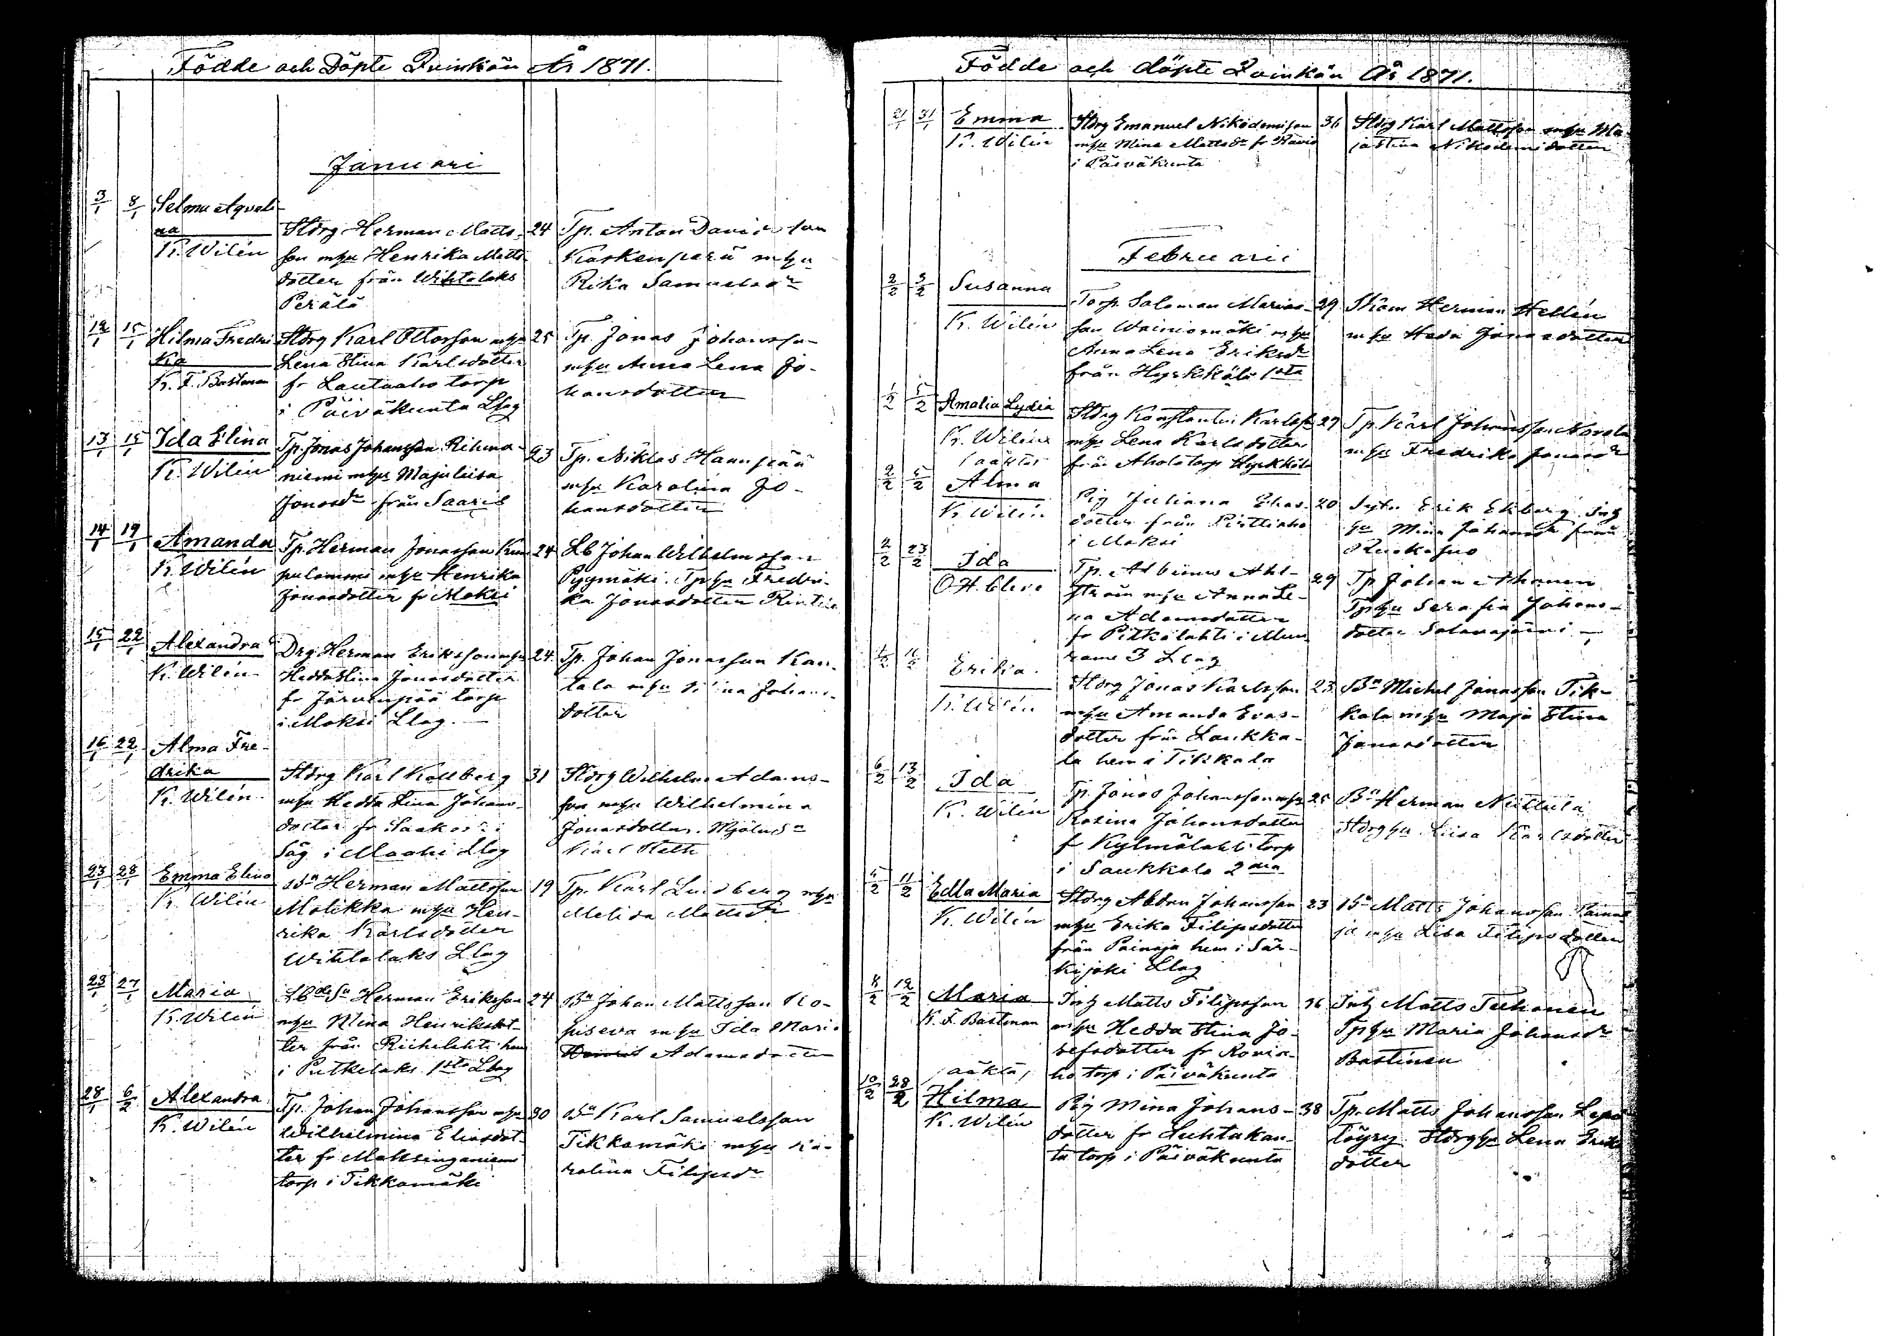 Födde och Döpte Qvinkön År 1871.
Januari
3/1 8/1 Selma Aqveli-
na
K. Wilén
Stdrg Herman Matts-
son m hu Henrika Matts-
dotter från Wihtalaks
Perälä
24
Tp. Anton Davidsson
Koskenperä m hu
Rika Samuelsdr
12/1 15/1 Hilma Fredri
ka
K. F. Bastman
Stdrg Karl Ottosson m hu
Lena Stina Karlsdotter
fr Lautaaho torp
i Päiväkunta Llag
25
Tp. Jonas Johansson
m hu Anna Lena Jo-
hansdotter
13/1 15/1 Ida Elina
K. Wilén
Tp. Jonas Johansson Rihma-
niemi m hu Majaliisa
Jonasdr från Saaris
23
Tp. Niklas Haunpää
m hu Karolina Jo-
hansdotter
14/1 19/1 Amanda
K. Wilén
Tp. Herman Jonasson Kum
pulammi m hu Henrika
Jonasdotter fr Moksi
24
Lb Johan Wilhelmsson
Pyymäki. Tp hu Fredri-
ka Jonasdotter
15/1 22/1 Alexandra
K. Wilén
Drg Herman Eriksson m hu
Hedda Stina Jonasdotter
fr Järvenpää torp
i Moksi Llag.
24
Tp. Johan Jonasson Kan-
tala m hu Stina Johans-
dotter
16/1 22/1 Alma Fre-
drika
K. Wilén
Stdrg Karl Kollberg
m hu Hedda Lina Johans-
dotter fr
Såg i Llag
31
Stdrg Wilhelm Adams-
son m hu Wilhelmina
Jonasdotter.
Karl
23/1 28/1 Emma Elina
K. Wilén
Bn Herman Mattsson
Molikka m hu Hen-
rika Karlsdotter
Wihtalaks Llag
19
Tp. Karl Lindberg m hu
Melida Mattsdr
23/1 27/1 Maria
K. Wilén
Herman Eriksson
m hu Mina Henriksdot-
ter från hem
i Putkilaks 1sta Llag
24
Bn Johan Mattsson Ko-
piseva m hu Ida Mari
Adamsdotter
28/1 6/2 Alexandra
K. Wilén
Tp. Johan Johansson m hu
Wilhelmina Eliasdot-
ter fr
torp i Tikkamäki
30
Bn Karl Samuelsson
Tikkamäki m hu Ka-
rolina Filipsdr
Födde och döpte Qvinkön År 1871.
21/1 31/1 Emma
K. Wilén
Stdrg Emanuel Nikodemisson
m hu Mina Mattsdr fr
i Päiväkunta
36
Stdrg Karl Mattsson m hu Ma
jastina Nikodemidotter
Februarii
2/2 3/2 Susanna
K. Wilén
Torp. Salomon
son Wainiomäki m hu
Anna Lena Eriksdr
från Hyrkkälä 1sta
29
Herman Hellén
m hu Heda Jonasdotter
1/2 5/2 Amalia Lydia
K. Wilén
Stdrg Konstantin Karlss
m hu Lena Karlsdotter
från Ahola torp Hyrkkälä
27
Tp. Karl Johansson
m hu Fredrika Jonasdr
2/2 5/2 (oäkta)
Alma
K. Wilén
Pig Juliana Elias-
dotter från
i Moksi
20
Erik Ekberg Inh
hu Mina Johansdr från
2/2 23/2 Ida
O. H. Cleve
Tp. Albinus Ahl-
ström m hu Anna Le-
na Adamsdotter
fr Pitkälahti i Muu
rame 3 Llag
29
Tp Johan Ahonen
Tp hu Serafia Johans-
dotter Salanajärvi
Erika
K. Wilén
Stdrg Jonas Karlsson
m hu Amanda Evas-
dotter från Laukka-
la hem i Tikkala
23
Bn Michel Jonasson Tik-
kala m hu Maja Stina
Jonasdotter
6/2 13/2 Ida
K. Wilén
Tp. Jonas Johansson m hu
Rosina Johansdotter
fr Kylmälahti torp
i Saukkola 2dra
25
Bn Herman Niittula
Stdrg hu Liisa Karlsdotter
5/2 11/2 Edla Maria
K. Wilén
Stdrg Johansson
m hu Erika Filipsdotter
från Painaja hem i Sär-
kijoki Llag
23
Bn Matts Johansson Paina
ja m hu Lisa Filipsdotter
8/2 12/2 Maria
K. F. Bastman
Inh Matts Filipsson
m hu Hedda Stina Jo-
sefsdotter fr
ho torp i Päiväkunta
36
Inh Matts Tuhanen
Tp hu Maria Johansdr
Bastinen
10/2 28/2 (oäkta)
Hilma
K. Wilén
Pig Mina Johans-
dotter fr Luhtakan-
ta torp i Päiväkunta
38
Tp. Matts Johansson Lepo
töyry. Stdrg hu Lena Eriks
dotter